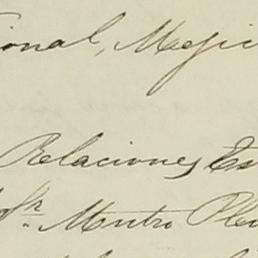 ional, Mejic
Relaciones Es
Mntro Ple